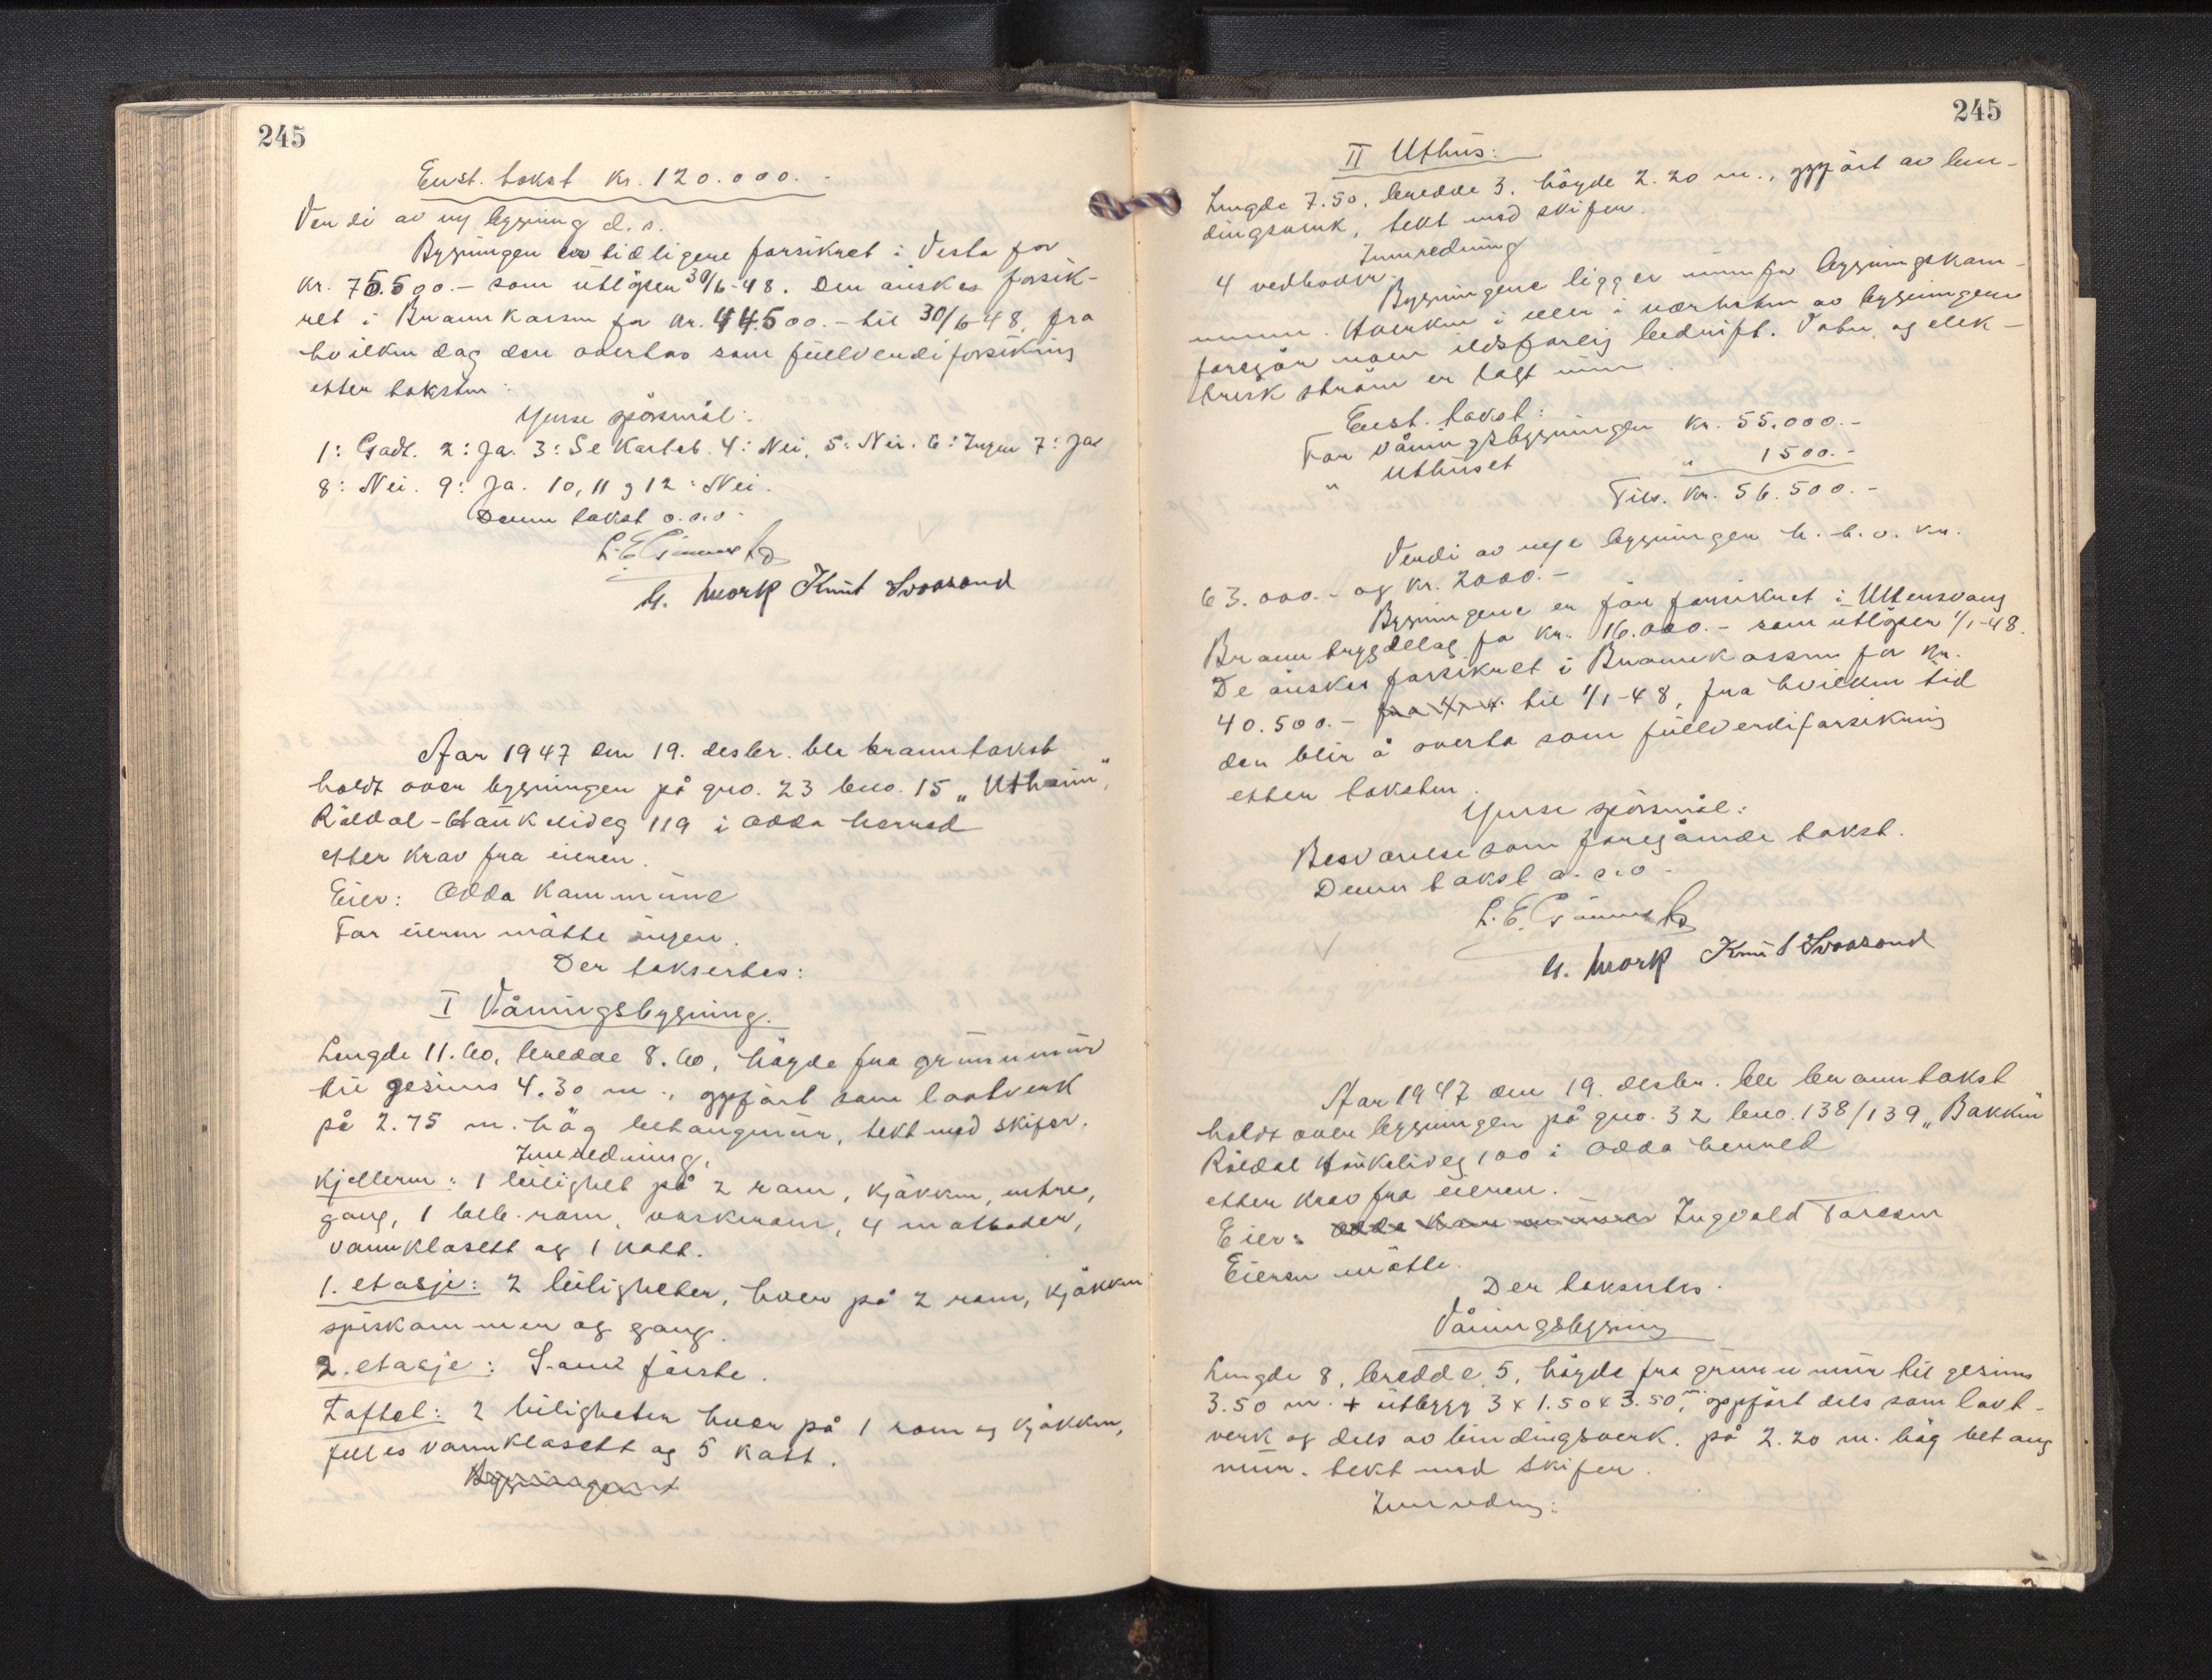 245
Enst. takst kr. 120.000.-
Verdi av ny bygning d. s.
Bygningen er tidligere forsikret i Vesta for
kr. 75.500.- som utløper 30/6-48. Den ønskes forsik-
ret i Brannkassen for kr. 44.500.- til 30/6-48, fra
hvilken dag den overtas som fullverdiforsikring
etter taksten.
Yuse spörsmål:
1: Godt. 2: Ja. 3: Se Kartet. 4: Nei, 5: Nei. 6: Ingen 7: Ja
8: Nei. 9: Ja. 10, 11 g 12: Nei.
Denne takst o.s.v.
L. E.
G. Mork Knut Svaasand
Aar 1947 den 19. desbr. ble branntakst
holdt over bygningen på gno. 23 bno. 15 „Utheim",
Röldal-Haukeliveg 119 i Odda herred
etter krav fra eieren.
Eier: Odda Kommune
For eieren møtte ingen.
Der taksertes:
I Våningsbygning.
Lengde 11.60, bredde 8.60, høyde fra grunnmur
til gesims 4.30 m., oppført som laftverk
på 2.75 m. høg betongmur, tekt med skifer.
Innredning.
Kjelleren: 1 leilighet på 2 rom, kjøkken, entre,
gang, 1 rom, vaskerom, 4 matboder,
vannklosett og 1 kott.
1. etasje: 2 leiligheter, hver på 2 rom, kjøkken
spiskammer og gang.
2. etasje: Som første.
Loftet: 2 leiligheter hver på 1 rom og kjøkken,
felles vannklosett og 5 kott.
245
II Uthus:
Lengde 7.50, bredde 3. høyde 2.20 m., oppført av bin-
dingsverk, tekt med skifer.
Innredning
4 vedboder.
Bygningene ligger innenfor bygningskom-
munen. Hverken i eller i nærheten av bygningene
foregår noen ildsfarlig bedrift. Vatn og elek-
trisk strøm er lagt inn.
Enst. takst:
For våningsbygningen kr. 55.000.-
" Uthuset " 1500.-
Tils. kr. 56.500.-
Verdi av nye bygninger h. h. v. kr.
63.000.- og kr. 2000.-
Bygningene er før forsikret i Ullensvang
Branntrygdelag for kr. 16.000.- som utløper 1/1-48.
De ønskes forsikret i Brannkassen for kr.
40.500.- til 1/1-48, fra hvilken tid
den blir å overta som fullverdiforsikring
etter taksten.
Yuse spörsmål:
Besvarelse som foregående takst.
Denne takst o.s.v.
L. E.
G. Mork Knut Svaasand
Aar 1947 den 19. desbr. ble branntakst
holdt over bygningen på gno. 32 bno. 138/139 „Bakken
Röldal Haukeliveg 100 i Odda herred
etter krav fra eieren.
Eier: Odda Kommune Ingvald Toresen
Eieren møtte.
Der taksertes.
Våningsbygning
Lengde 8, bredde 5, høyde fra grunnmur til gesims
3.50 m. + utbygg 3 x 1.50 x 3.50 m. oppført dels som lavt-
verk og dels av bindingsverk. på 2.20 m. høg betong
mur. tekt med skifer.
Innredning: